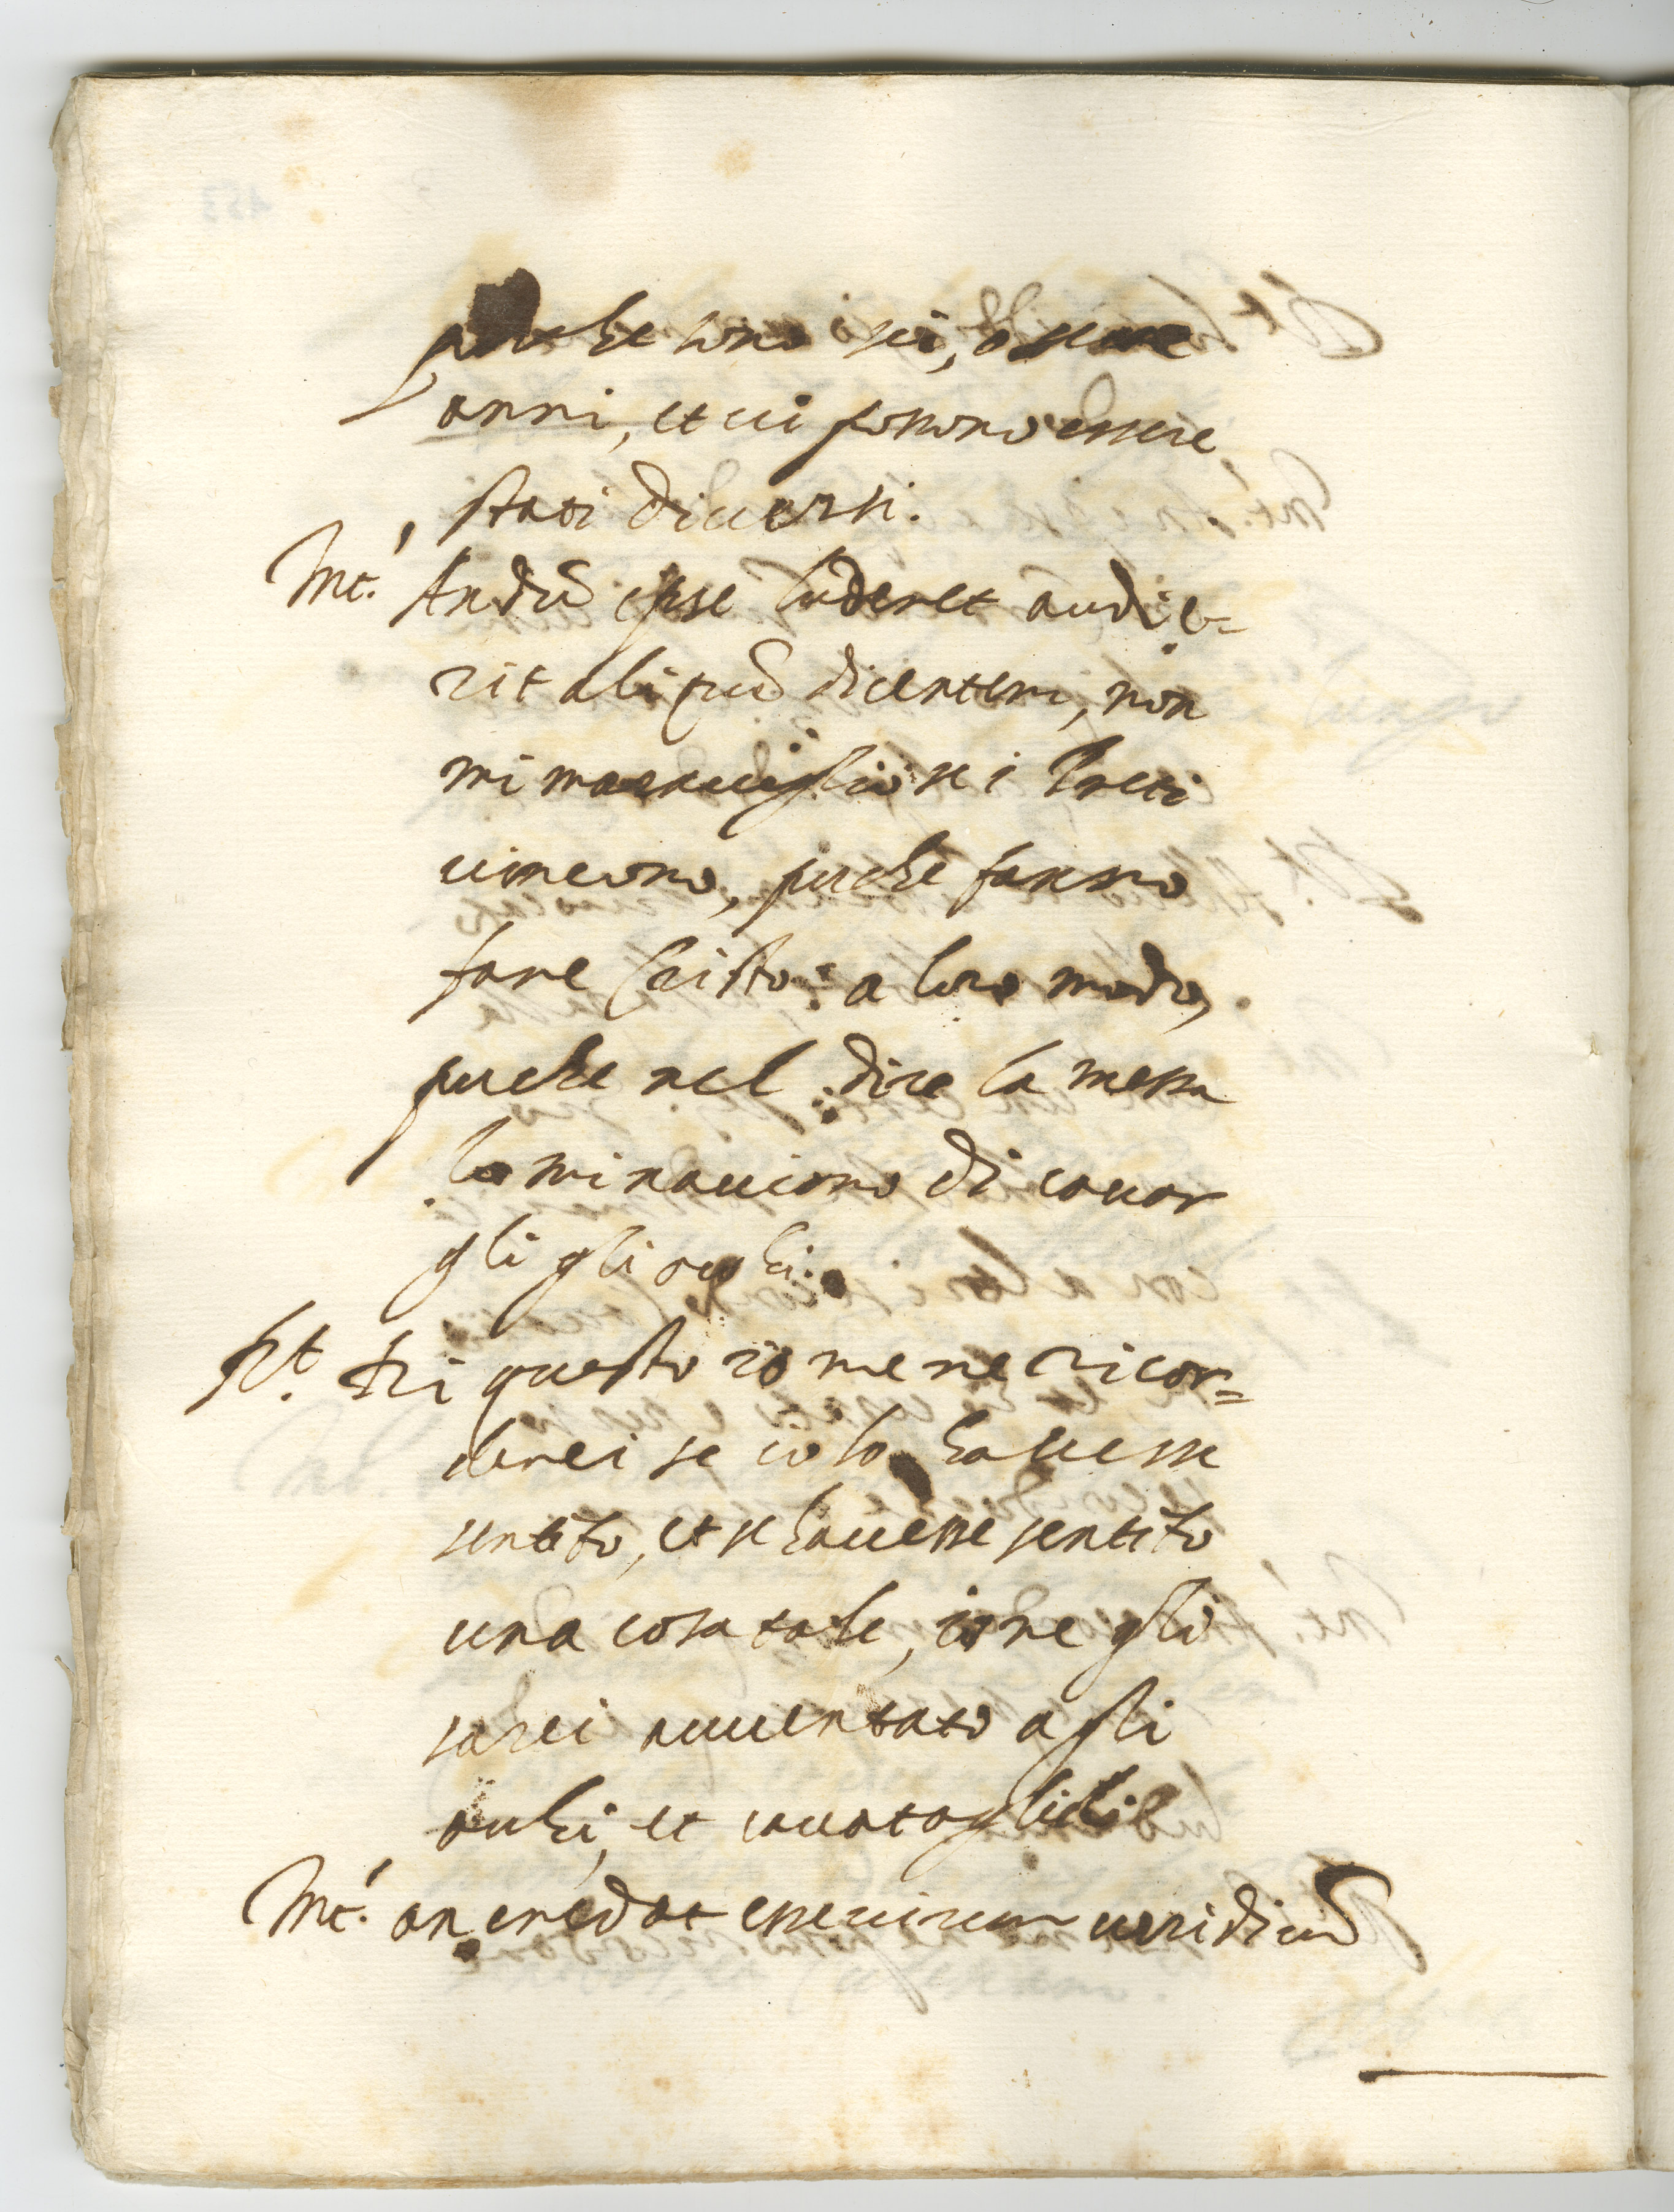 perche sono sei, o sette
anni, et ui possono essere
stati diuersi.
Int. An dũ ipse luderet audie-
rit aliquẽ dicentem, non
mi marauiglio se i Preti
uincono, perche fanno
fare Cristo a loro modo,
perche nel dire la messa
lo minacciono di cauar
gli gli ochi.
Rt. Di questo io me ne ricor=
derei se io lo hauesse
sentito, et se hauesse sentito
una cosa tale, io me gli
sarei auuentato agli
ochi, et cauatoglieli
Int. an credat esse uirum ueridicũ